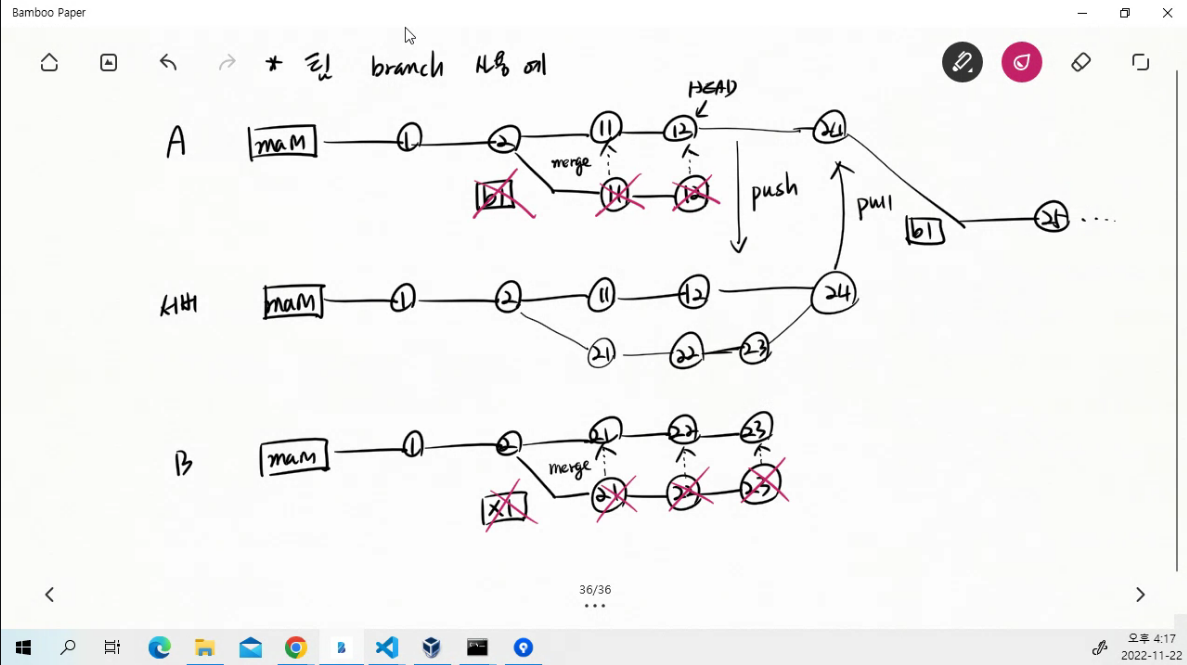 Bamboo Paper
* 팀 branch 사용 예
HEAD
A main 1 2 11 12 24
merge
b1 11 12
push
pull
b1 25 ....
서버 main 1 2 11 12 24
21 22 23
B main 1 2 21 22 23
merge
x1 21 22 23
36/36
오후 4:17
2022-11-22